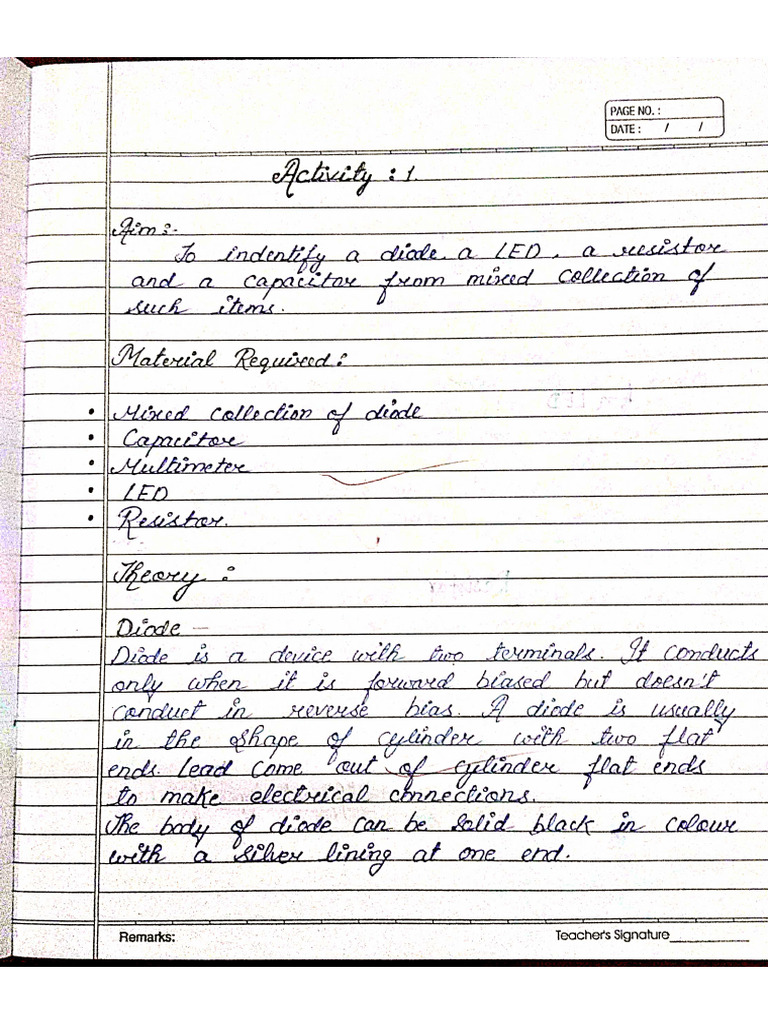 PAGE NO. :
DATE : / /
Activity : 1.
Aim :-
To indentify a diode, a LED, a resistor
and a capacitor from mixed collection of
such items.
Material Required :
• Mixed collection of diode
• Capacitor
• Multimeter
• LED
• Resistor.
Theory :
Diode —
Diode is a device with two terminals. It conducts
only when it is forward biased but doesn't
conduct in reverse bias. A diode is usually
in the shape of cylinder with two flat
ends. Lead come out of cylinder flat ends
to make electrical connections.
The body of diode can be solid black in colour
with a silver lining at one end.
Remarks:
Teacher's Signature